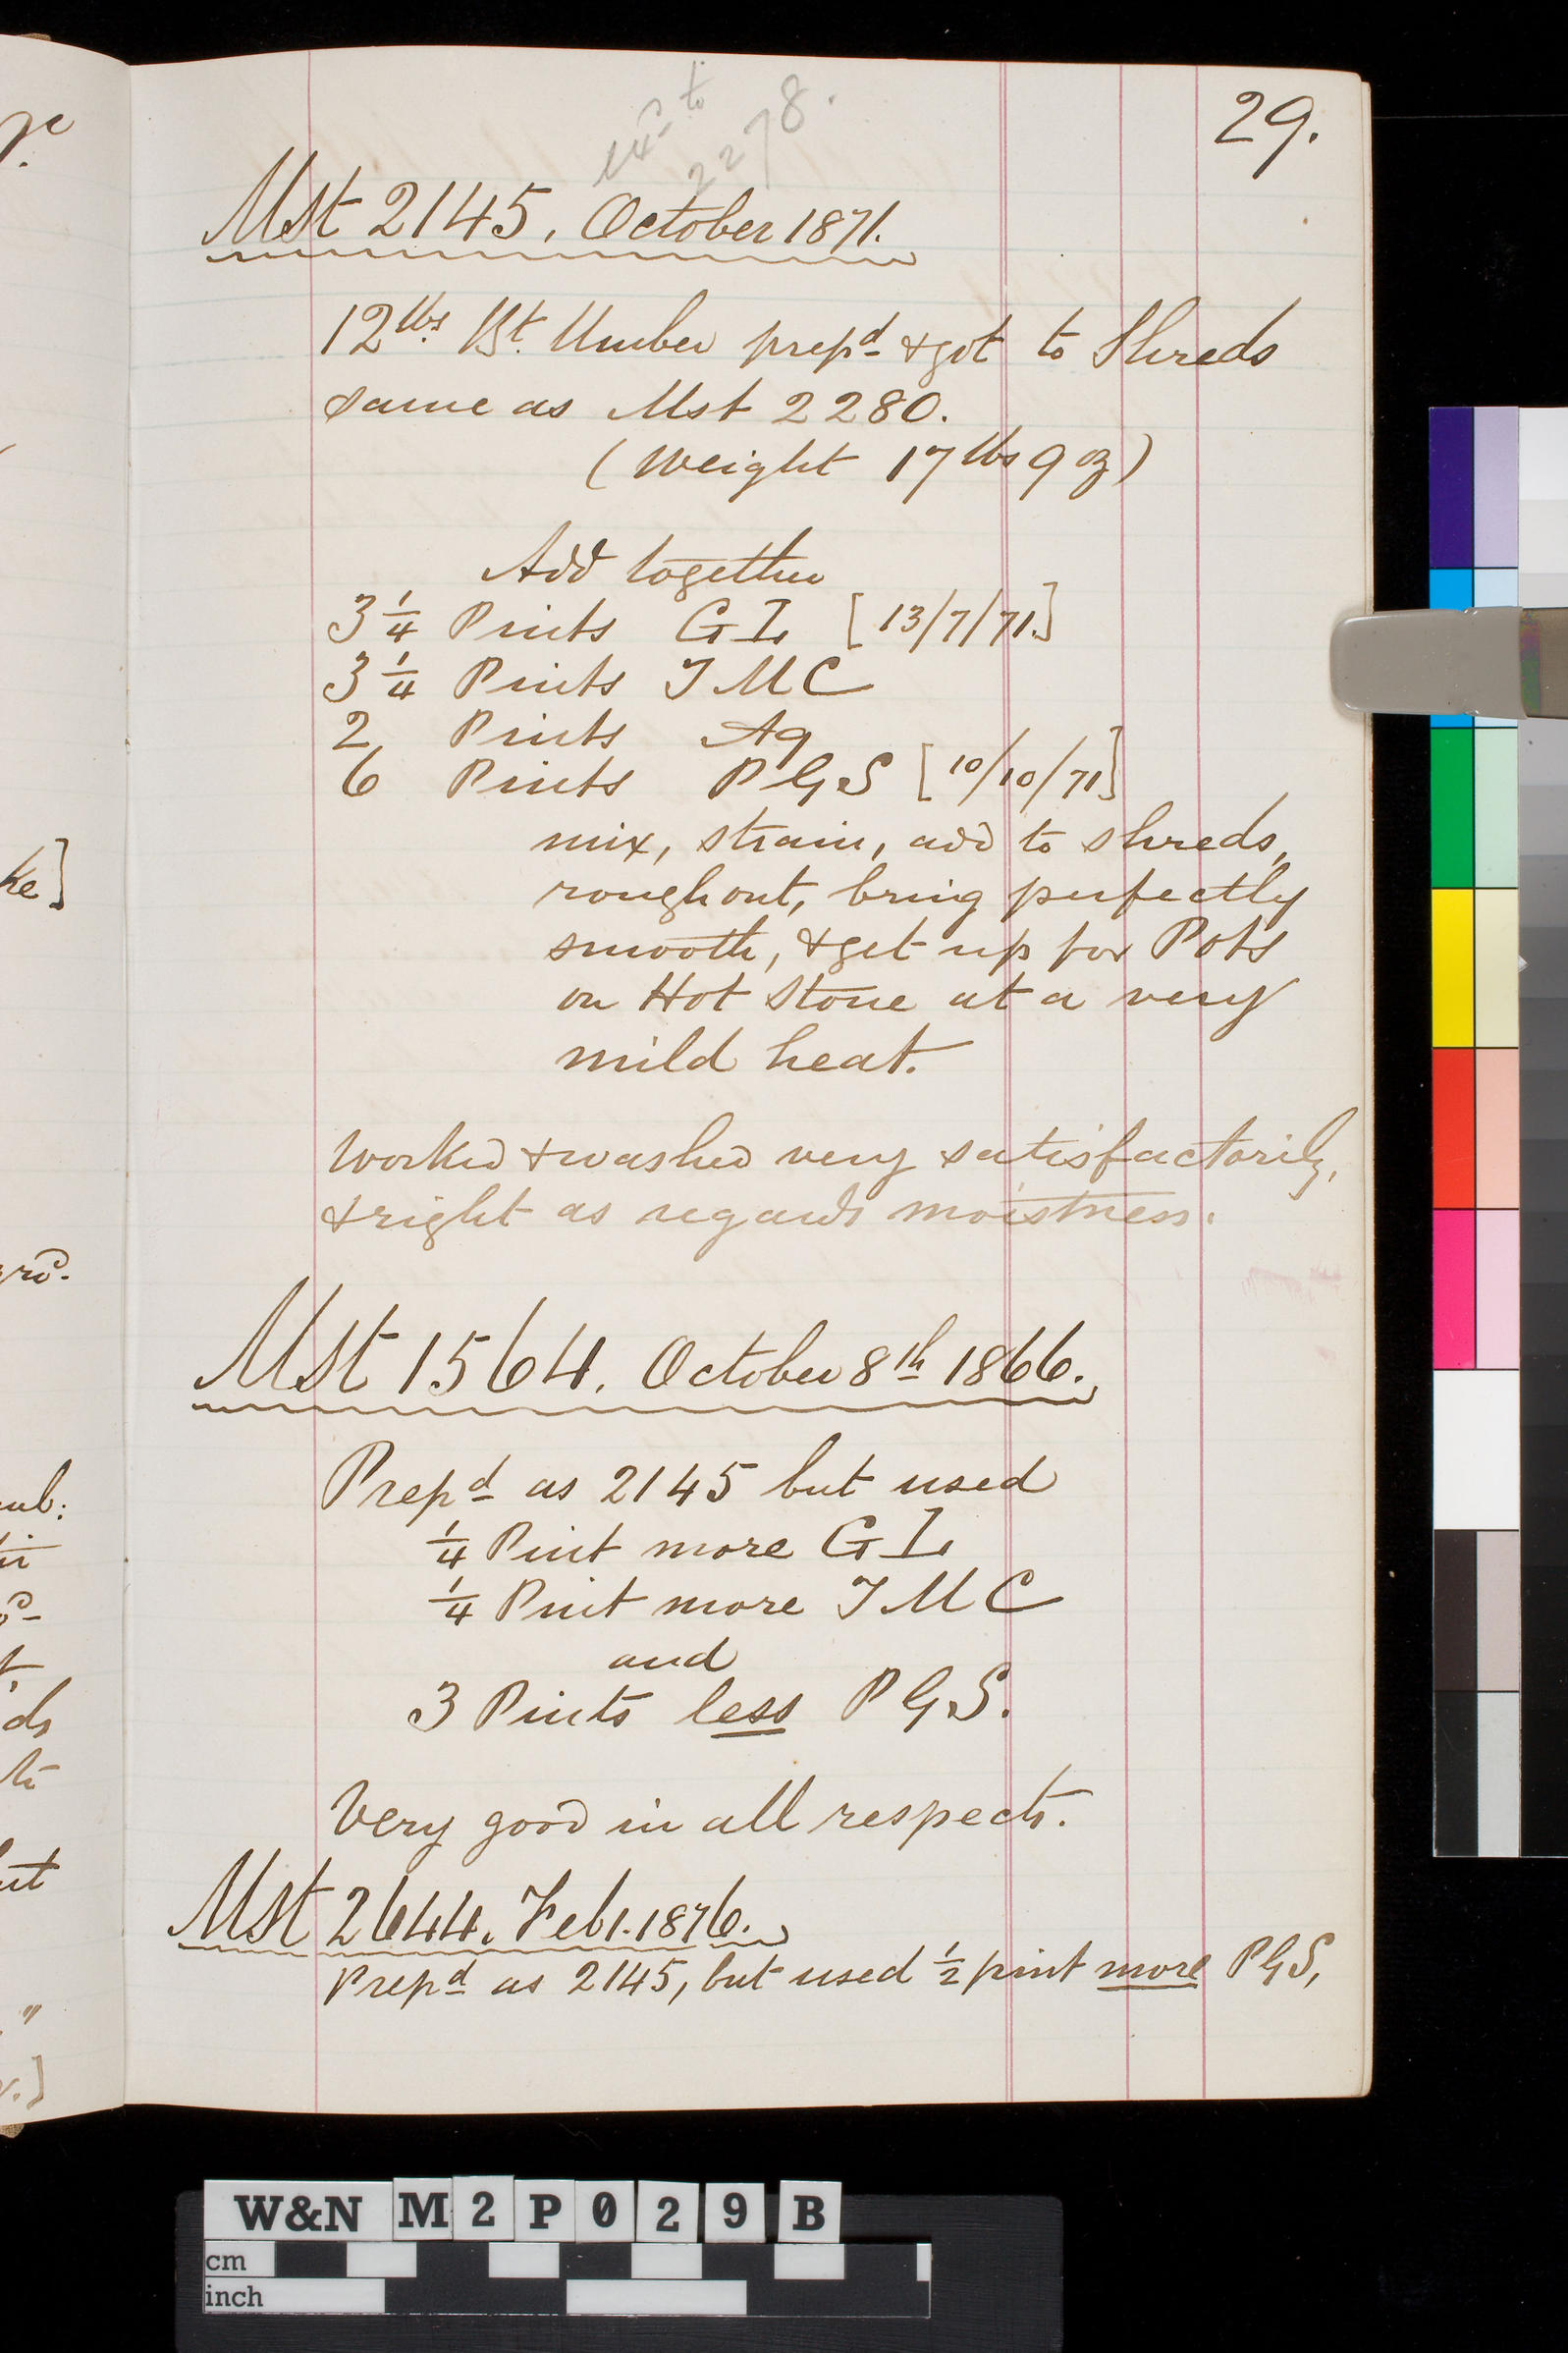 29.
2278.
Mst 2145. October 1871.
12 lbs. Bt. Umber prepd & got to Shreds
same as Mst 2280.
(Weight 17 lbs 9 oz)
Add together
3 1/4 Pints GL [13/7/71.]
3 1/4 Pints TMC
2 Pints Aq
6 Pints PGS [10/10/71]
mix, strain, add to shreds,
rough out, bring perfectly
smooth, & get up for Pots
on Hot Stone at a very
mild heat.
Worked & washed very satisfactorily,
& right as regards moistness.
Mst 1564. October 8th 1866.
Prepd as 2145 but used
1/4 Pint more GL
1/4 Pint more TMC
and
3 Pints less PGS.
Very good in all respects.
Mst 2644. Feb 1. 1876.
Prepd as 2145, but used 1/2 pint more PGS,
W&N M2P029B
cm
inch